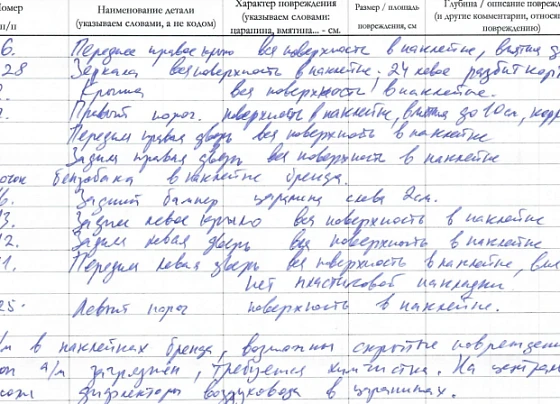 Номер п/п
Наименование детали (указываем словами, а не кодом)
Характер повреждения (указываем словами: царапина, вмятина... - см.
Размер / площадь повреждения, см
Глубина / описание повреж (и другие комментарии, относ повреждению)
6. Переднее правое крыло вся поверхность в наклейке, вмятина
28 Зеркала вся поверхность в наклейке. 24 левое разбит
Крыша вся поверхность в наклейке.
Правый порог. поверхность в наклейке, вмятина до 10см,
Передняя правая дверь вся поверхность в наклейке
Задняя правая дверь вся поверхность в наклейке
бензобака в наклейке бренда.
6. Задний бампер царапина слева 2см.
3. Заднее левое крыло вся поверхность в наклейке
12. Задняя левая дверь вся поверхность в наклейке
1. Передняя левая дверь вся поверхность в наклейке,
нет пластиковой накладки
25. Левый порог поверхность в наклейке.
/м в наклейках бренда, возможны скрытые повреждени
а/м загрязнён, требуется химчистка. На централ
дефлекторы воздуховода в царапинах.